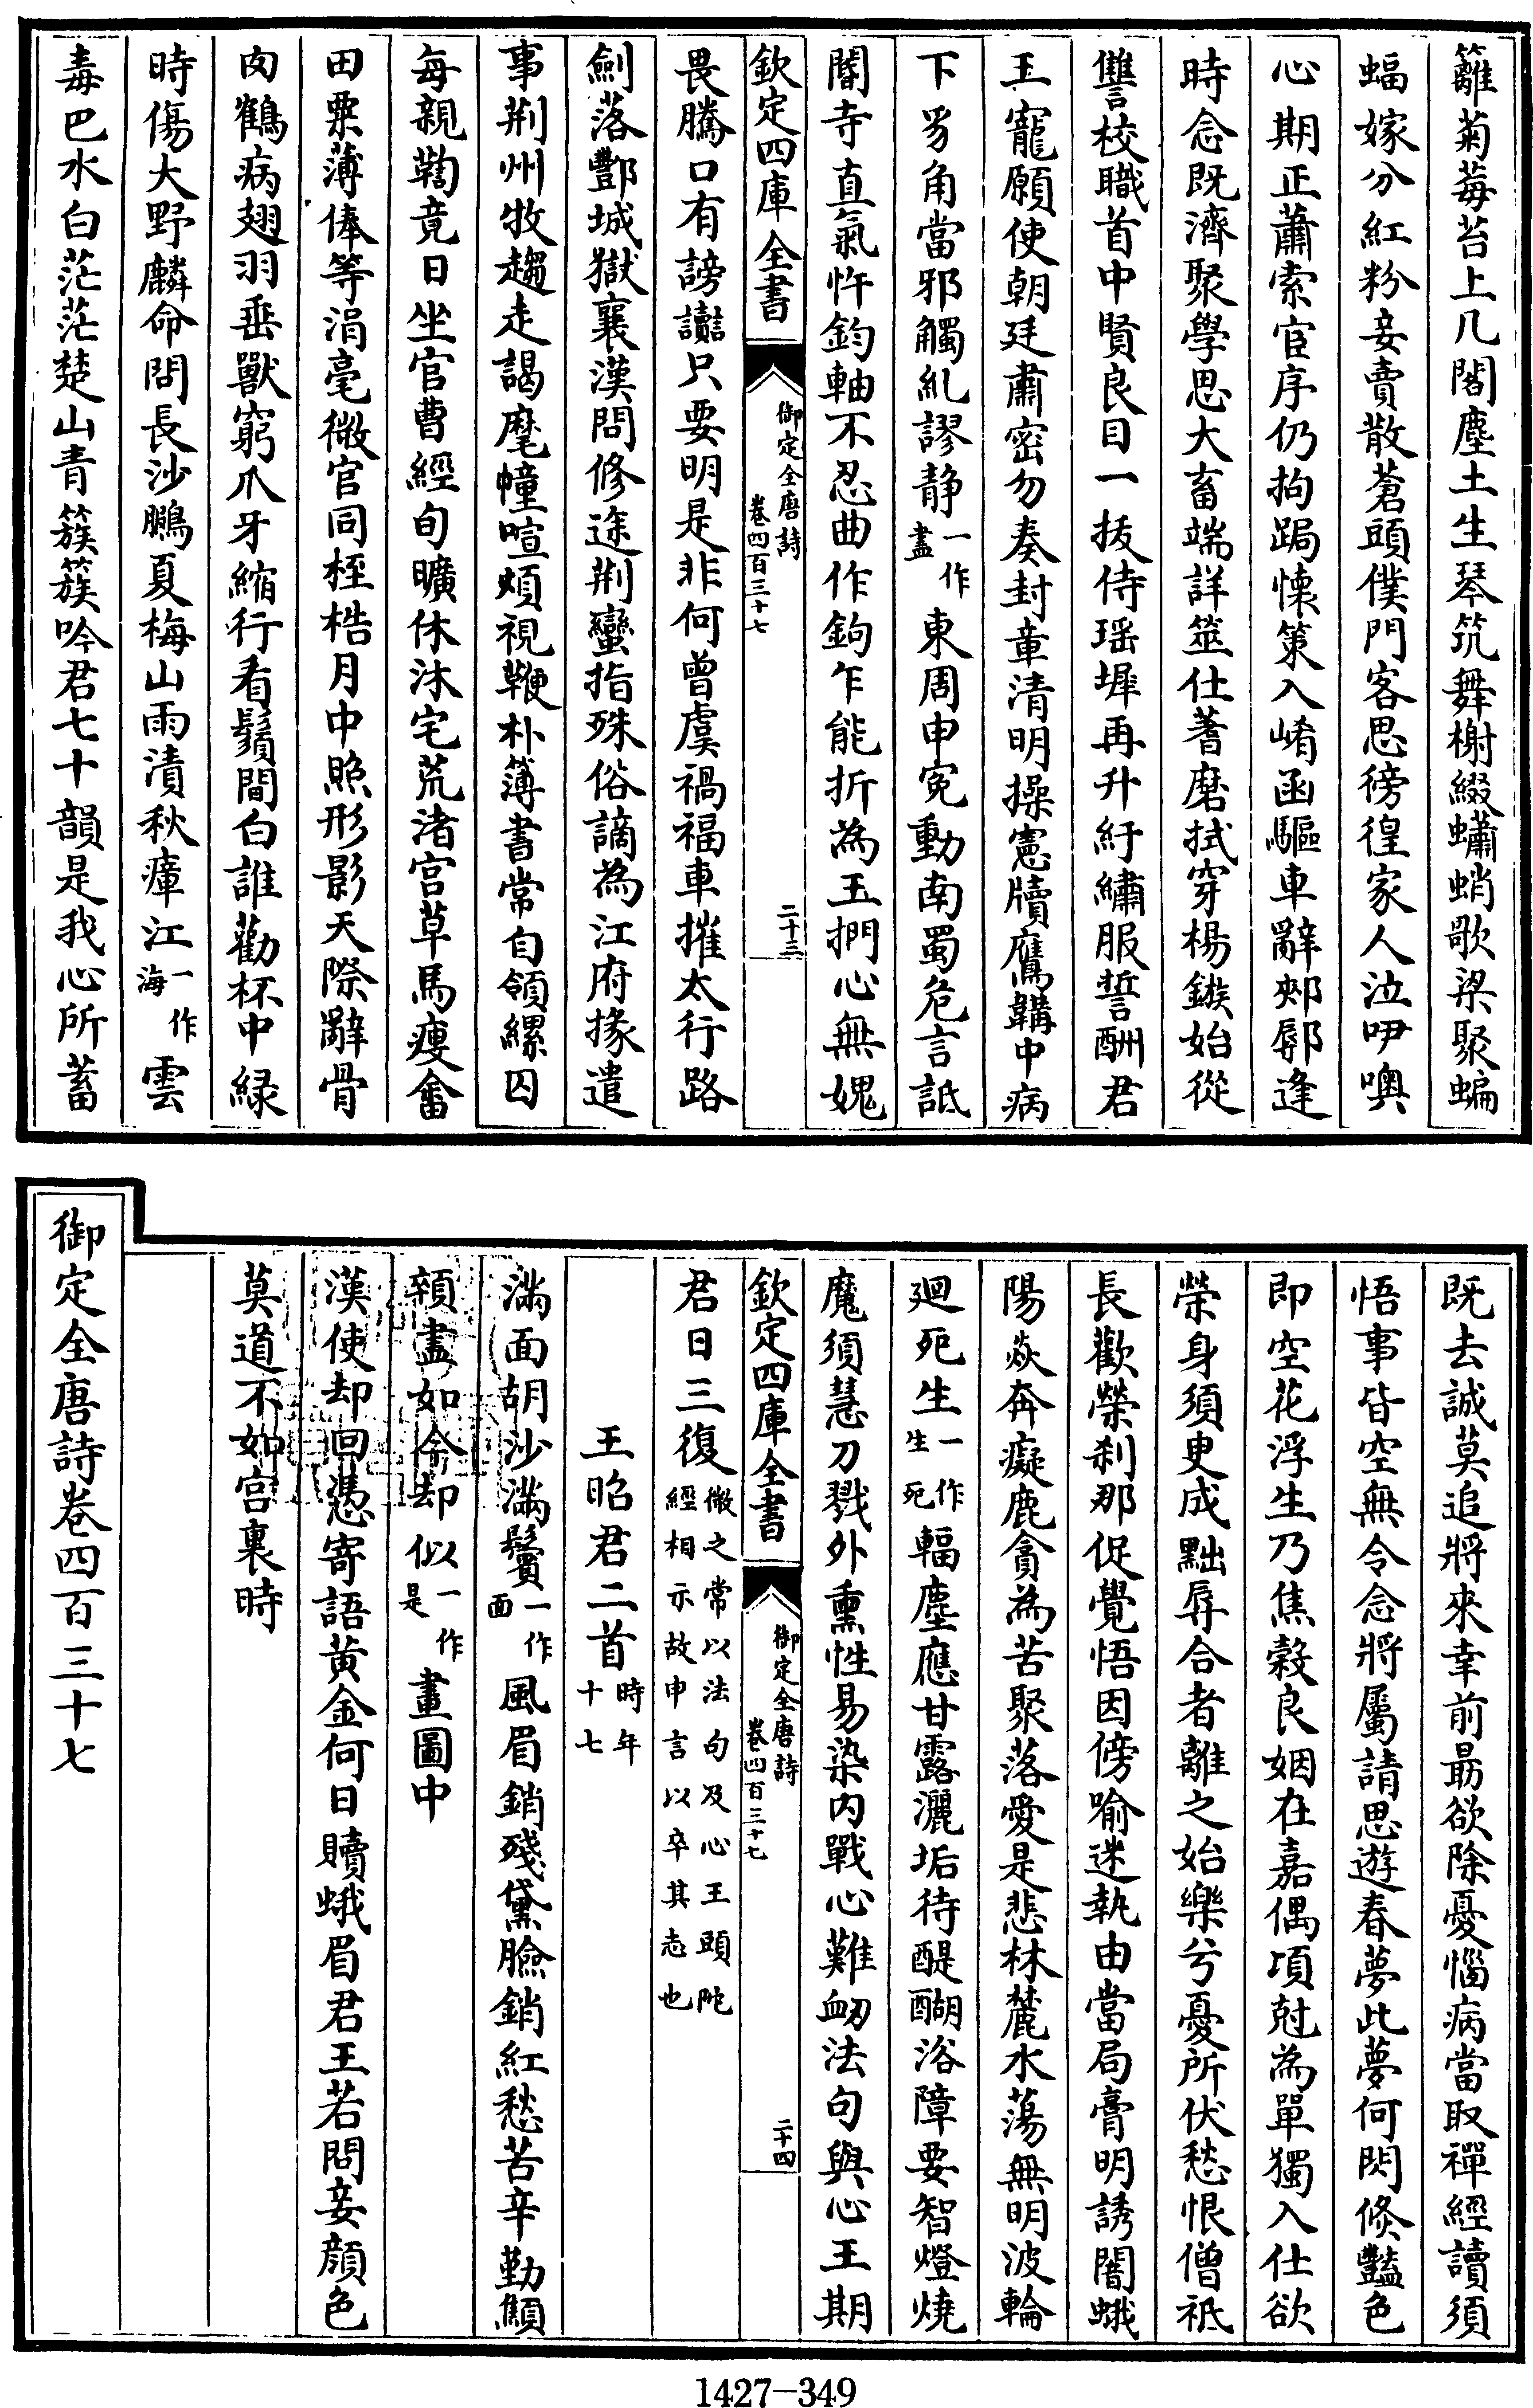 籬菊莓苔上几閣塵土生琴筑舞榭綴蠨蛸歌梁聚蝙
蝠嫁分紅粉妾賣散蒼頭僕門客思徬徨家人泣咿噢
心期正蕭索宦序仍拘跼懐策入崤函驅車辭郟鄏逢
時念既濟聚學思大畜端詳筮仕蓍磨拭穿楊鏃始從
讐校職首中賢良目一拔侍瑶墀再升紆繡服誓酬君
王寵願使朝廷肅密勿奏封章清明操憲牘鷹韝中病
下豸角當邪觸糺謬静一作盡東周申寃動南蜀危言詆
閽寺直氣忤鈞軸不忍曲作鉤乍能折為玉捫心無媿
畏騰口有謗讟只要明是非何曾虞禍福車摧太行路
劍落酆城獄襄漢問修途荆蠻指殊俗謫為江府掾遣
事荆州牧趨走謁麾幢喧煩視鞭朴簿書常自領縲囚
每親鞫竟日坐官曹經旬曠休沐宅荒渚宫草馬瘦畬
田粟薄俸等涓毫微官同桎梏月中照形影天際辭骨
肉鶴病翅羽垂獸窮爪牙縮行看鬚間白誰勸杯中緑
時傷大野麟命問長沙鵩夏梅山雨漬秋瘴江一作海雲
毒巴水白茫茫楚山青簇簇吟君七十韻是我心所蓄
欽定四庫全書
御定全唐詩
卷四百三十七
二十三
既去誠莫追將來幸前朂欲除憂惱病當取禪經讀須
悟事皆空無令念將屬請思遊春夢此夢何閃倏豔色
即空花浮生乃焦榖良姻在嘉偶頃尅為單獨入仕欲
榮身須臾成黜辱合者離之始樂兮憂所伏愁恨僧祗
長歡榮刹那促覺悟因傍喻迷執由當局膏明誘闇蛾
陽焱奔癡鹿貪為苦聚落愛是悲林麓水蕩無明波輪
廻死生一作生死輻塵應甘露灑垢待醍醐浴障要智燈燒
魔須慧刀戮外熏性易染内戰心難衂法句與心王期
君日三復微之常以法句及心王頭陀經相示故申言以卒其志也
王昭君二首時年十七
滿面胡沙滿鬢一作面風眉銷殘黛臉銷紅愁苦辛勤顦
顇盡如今却似一作是畫圖中
漢使却回憑寄語黄金何日贖蛾眉君王若問妾顔色
莫道不如宫裏時
欽定四庫全書
御定全唐詩
卷四百三十七
二十四
御定全唐詩卷四百三十七
1427-349